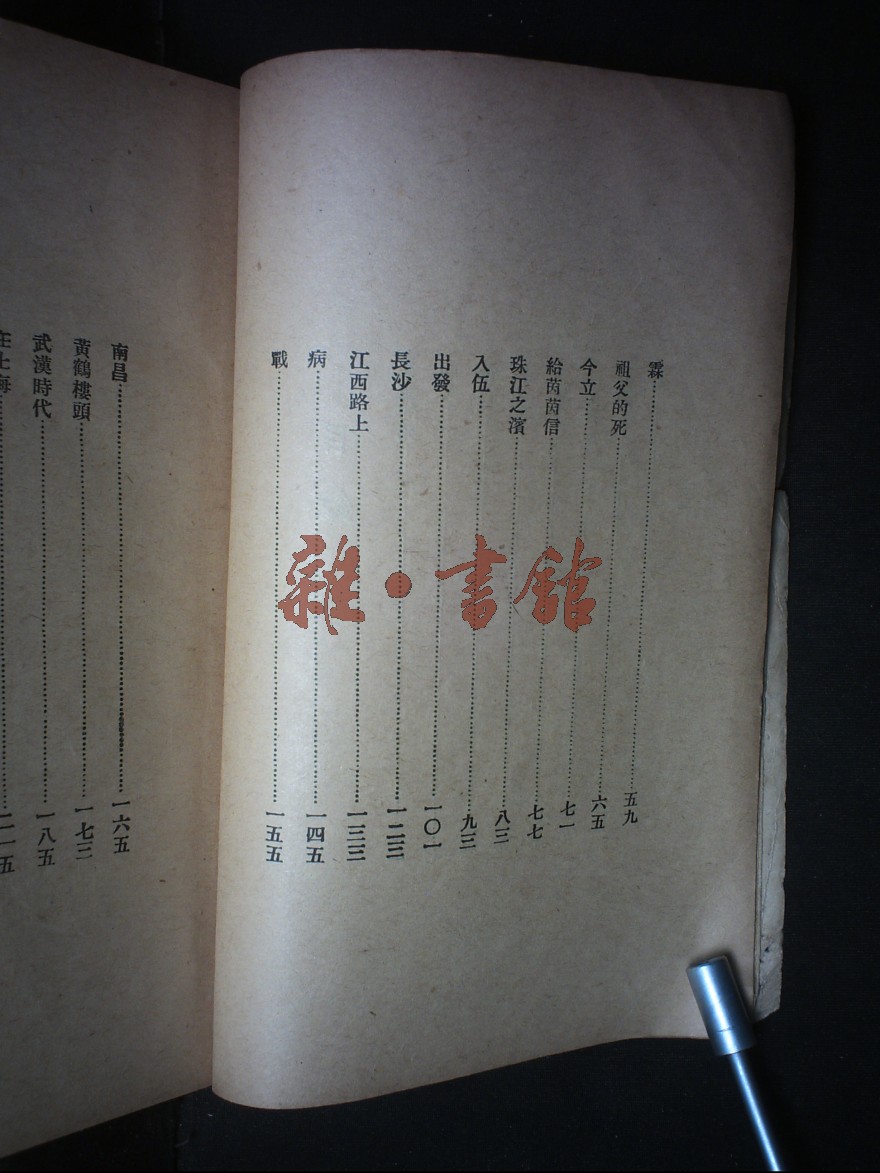 霖⋯⋯五九
祖父的死⋯⋯六五
今立⋯⋯七一
給茵茵信⋯⋯七七
珠江之濱⋯⋯八三
入伍⋯⋯九三
出發⋯⋯一〇一
長沙⋯⋯一二三
江西路上⋯⋯一三三
病⋯⋯一四五
戰⋯⋯一五五
南昌⋯⋯一六五
黃鶴樓頭⋯⋯一七三
武漢時代⋯⋯一八五
在上海⋯⋯二一五
雜·書館